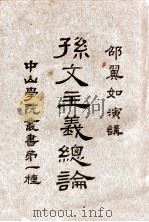 邵翼如演講
孫文主義總論
中山學院叢書第一種